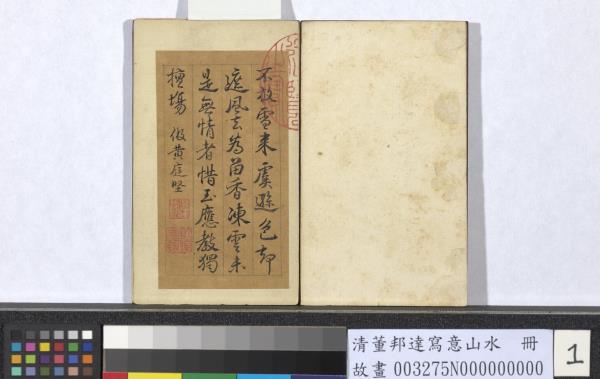 不放雪來虞遜色却
遮風去為留香凍雲未
是無情者惜玉應教獨
擅塲 倣黃庭堅
清董邦達寫意山水 冊
故畫 003275N000000000
1